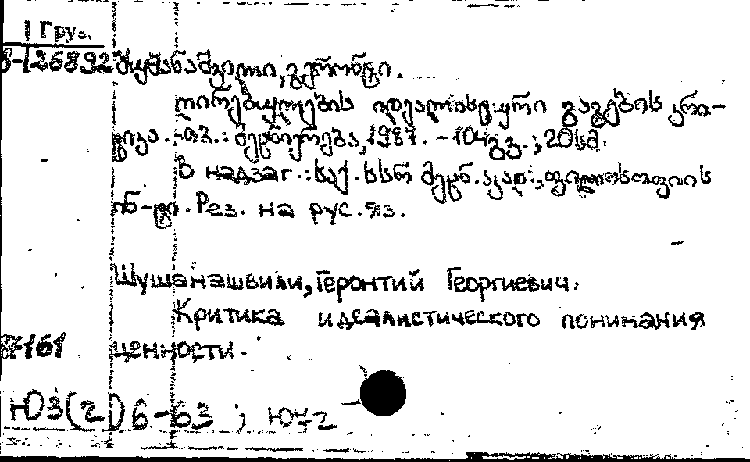 Груз.
8-126892 შუშანაშვილი, გერონტი.
ღირებულების იდეალისტური გაგების კრი-
ტიკა. - თბ.: მეცნიერება, 1987. - 104 გვ.; 20 სმ.
В надзаг.: საქ. სსრ მეცნ. აკად., ფილოსოფიის
ინ-ტი. Рез. на рус. яз.
Шушанашвили, Геронтий Георгиевич.
Критика идеалистического понимания
ценности.
ЮЗ(2)6-63 ;